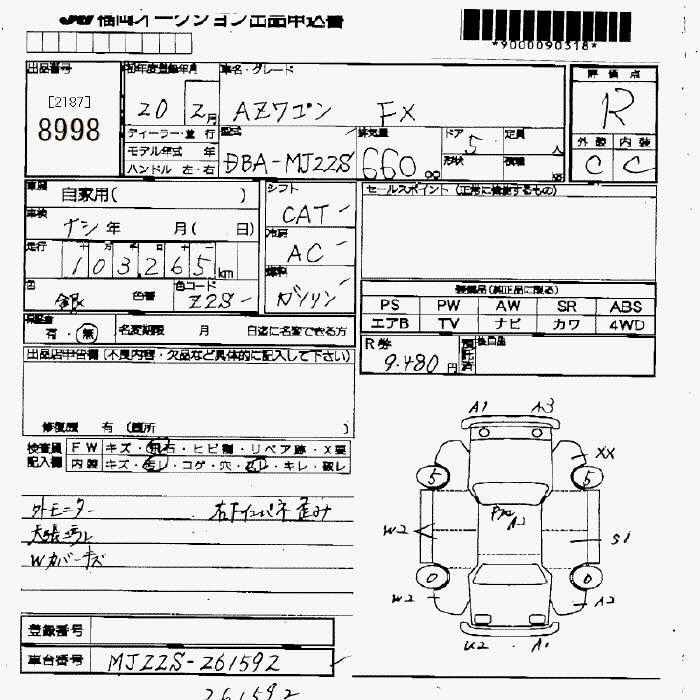 JU福岡オークション出品申込書
*9000090318*
出品番号
[2187]
8998
初年度登録年月
20 2月
車名・グレード
AZワゴン FX
評価点
R
外装 内装
C C
ディーラー・並行
モデル年式 年
ハンドル 左・右
型式
DBA-MJ22S
排気量
660 cc
ドア
5
形状
定員
人
積載
車歴
自家用( )
車検
ナシ 年 月( 日)
走行
十 万 千 百 十 一
103265 km
色
銀
色番
色コード
Z2S-
シフト
CAT
冷房
AC
燃料
ガソリン
セールスポイント (正常に機能するもの)
装備品 (純正品に限る)
PS PW AW SR ABS
エアB TV ナビ カワ 4WD
保証書
有・無
名変期限 月 日迄に名変できる方
R券
9.480円
預託済
後日品
出品店申告欄 (不良内容・欠品など具体的に記入して下さい)
修復歴 有 (箇所 )
検査員
記入欄
FW キズ・飛石・ヒビ割・リペア跡・X要
内装 キズ・汚レ・コゲ・穴・スレ・キレ・破レ
外モニター
右下インパネ歪み
天張汚レ
Wカバーキズ
A1 A3
XX
5 5
A1
W2
S1
0 0
W2 A2
U2 A1
登録番号
車台番号
MJ22S-261592
261592